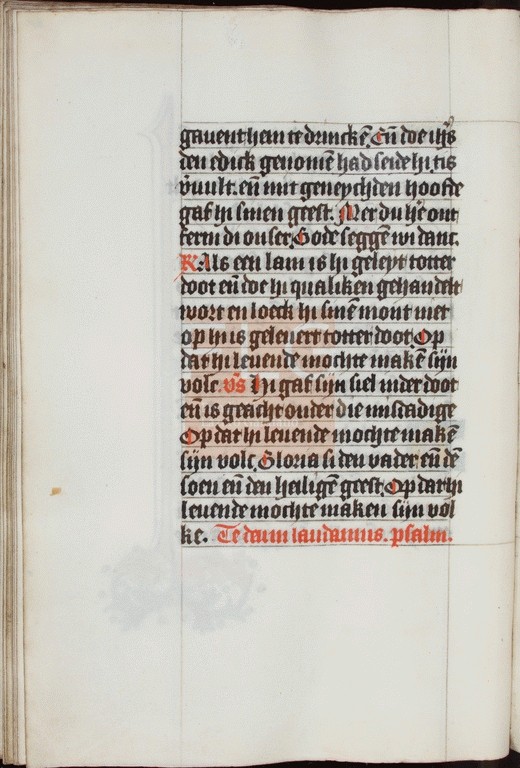 gauent hem te drinckē. Eñ doe ihs̄
den edick genomē had seide hi. tis
v̄vult. eñ mit geneychden hoofde
gaf hi sinen geest. Mer du hē ont
ferm di onser. Gode seggē wi danc.
R Als een lam is hi geleyt totter
doot eñ doe hi qualiken gehandelt
wort en loeck hi sinē mont niet
op hi is gelevert totter doot. Op
dat hi leuende mochte makē sijn
volc. vs̄ Hi gaf sijn siel inder doot
eñ is geacht onder die misdadige
Op dat hi leuende mochte makē
sijn volc. Gloria si den vader eñ dē
soen eñ den heiligē geest. Op dat hi
leuende mochte maken sijn vol
ke. Te deum laudamus. psalm.